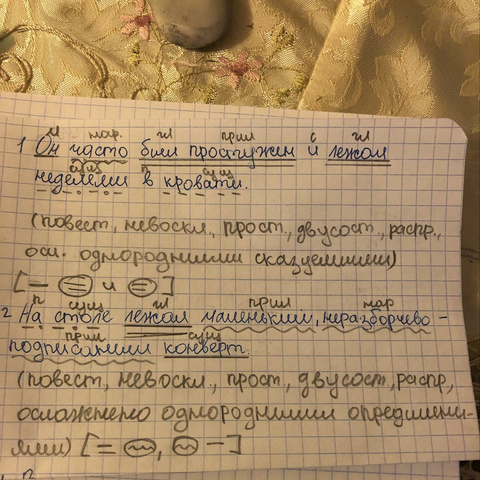 м нар. гл прил с гл
1 Он часто был простужен и лежал
сущ п сущ
неделями в кровати.
(повест., невоскл., прост., двусост., распр.,
осл. однородными сказуемыми)
[— = и =]
п сущ гл прил нар
2 На столе лежал маленький, неразборчево -
прил сущ
подписанный конверт.
(повест., невоскл., прост., двусост., распр.,
осложнено однородными определени-
ями) [= ~, ~ —]